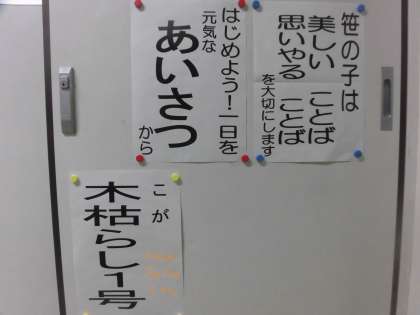 笹の子は
美しい ことば
思いやる ことば
を大切にします
はじめよう！一日を
元気な
あいさつ
から
こが
木枯らし1号